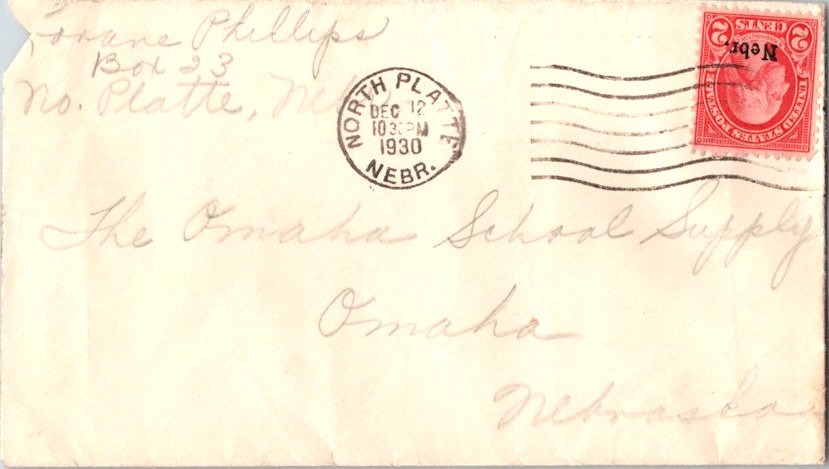 Lorane Phillips
Box 23
No. Platte, Neb
NORTH PLATTE
DEC 12
1030PM
1930
NEBR.
2 CENTS 2
Nebr.
UNITED STATES POSTAGE
The Omaha School Supply
Omaha
Nebraska